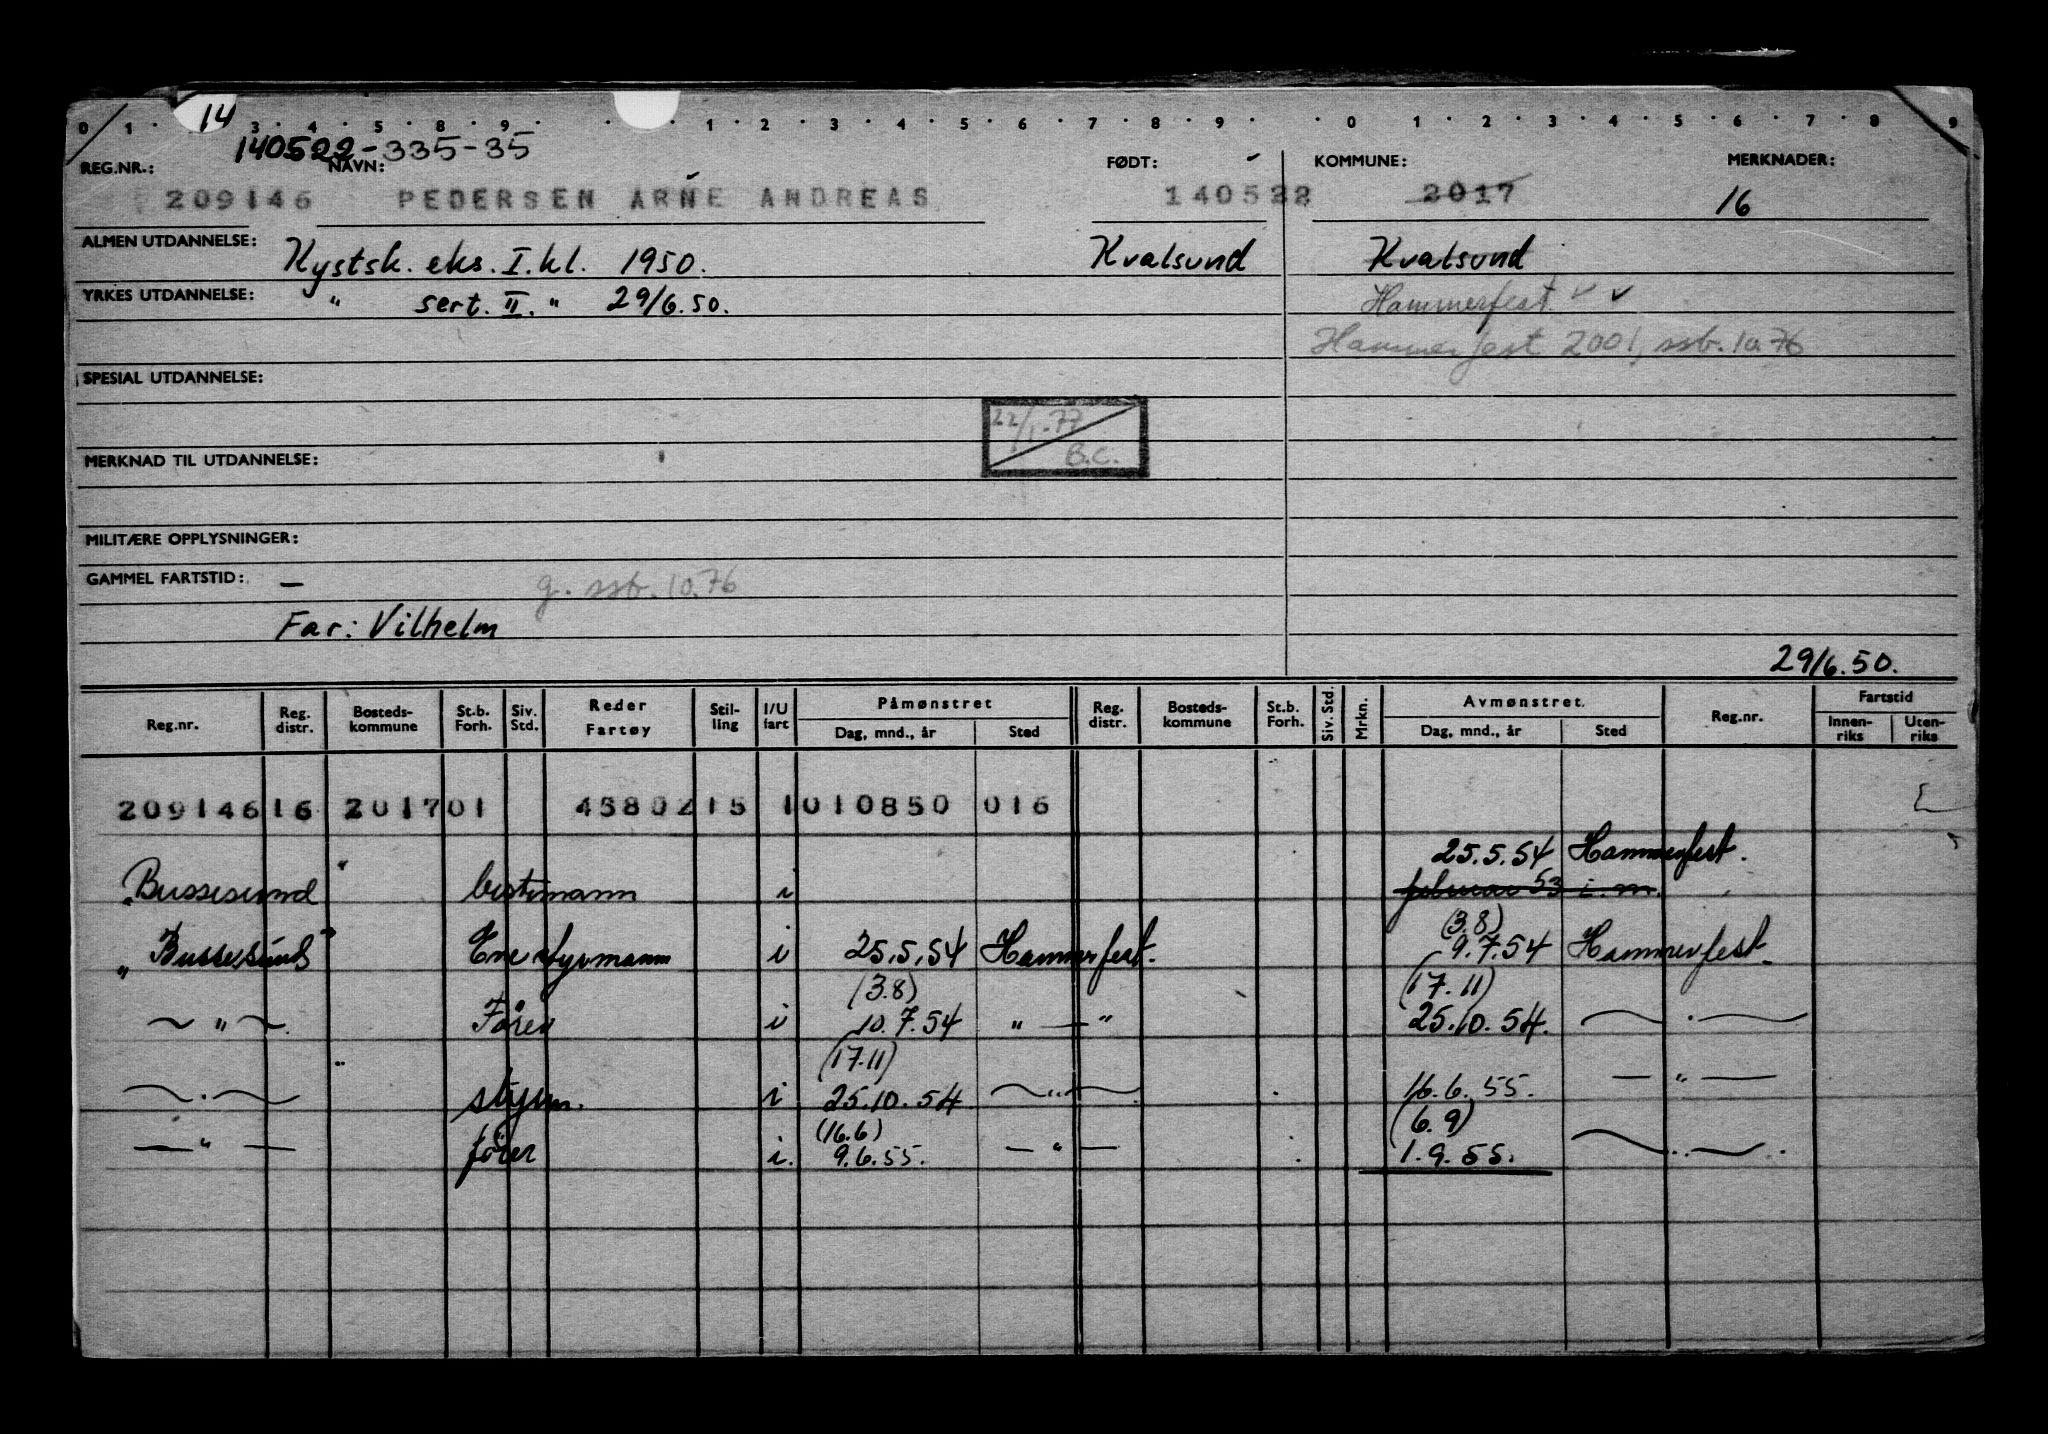 0 1 · 14 3 · 4 · 5 · 8 · 9 · · · 1 · 2 · 3 · 4 · 5 · 6 · 7 · 8 · 9 · · 0 · 1 · 2 · 3 · 4 · 5 · 6 · 7 · 8 · 9
140522-335-35
REG.NR.: NAVN: FØDT: KOMMUNE: MERKNADER:
209146 PEDERSEN ARNE ANDREAS 140522 2017 16
ALMEN UTDANNELSE: Kystsk. eks. I. kl. 1950. Kvalsund Kvalsund
YRKES UTDANNELSE: " sert. II. " 29/6.50. Hammerfest ✓ ✓
Hammerfest 2001, ssb. 10.76
SPESIAL UTDANNELSE:
22/1-77
B.C.
MERKNAD TIL UTDANNELSE:
MILITÆRE OPPLYSNINGER:
GAMMEL FARTSTID: — g. ssb. 10.76
Far: Vilhelm
29/6.50.
Reg.nr. Reg. distr. Bosteds-kommune St.b. Forh. Siv. Std. Reder Fartøy Stil-ling I/U fart Påmønstret Dag, mnd., år Sted Reg. distr. Bosteds-kommune St.b. Forh. Siv. Std. Mrkn. Avmønstret. Dag, mnd., år Sted Reg.nr. Fartstid Innen-riks Uten-riks
209146 16 2017 01 4580215 1 010850 016
25.5.54 Hammerfest.
"Bussesund" bestmann i februar 53 i.m.
(3.8)
"Bussesund" Enestyrmann i 25.5.54 Hammerfest. 9.7.54 Hammerfest.
(3.8) (17.11)
~ " ~. Fører i 10.7.54 " — " 25.10.54.
(17.11)
styrm. i 25.10.54 16.6.55. — " —
(16.6) (6.9)
— " — fører i. 9.6.55. — " — 1.9.55.